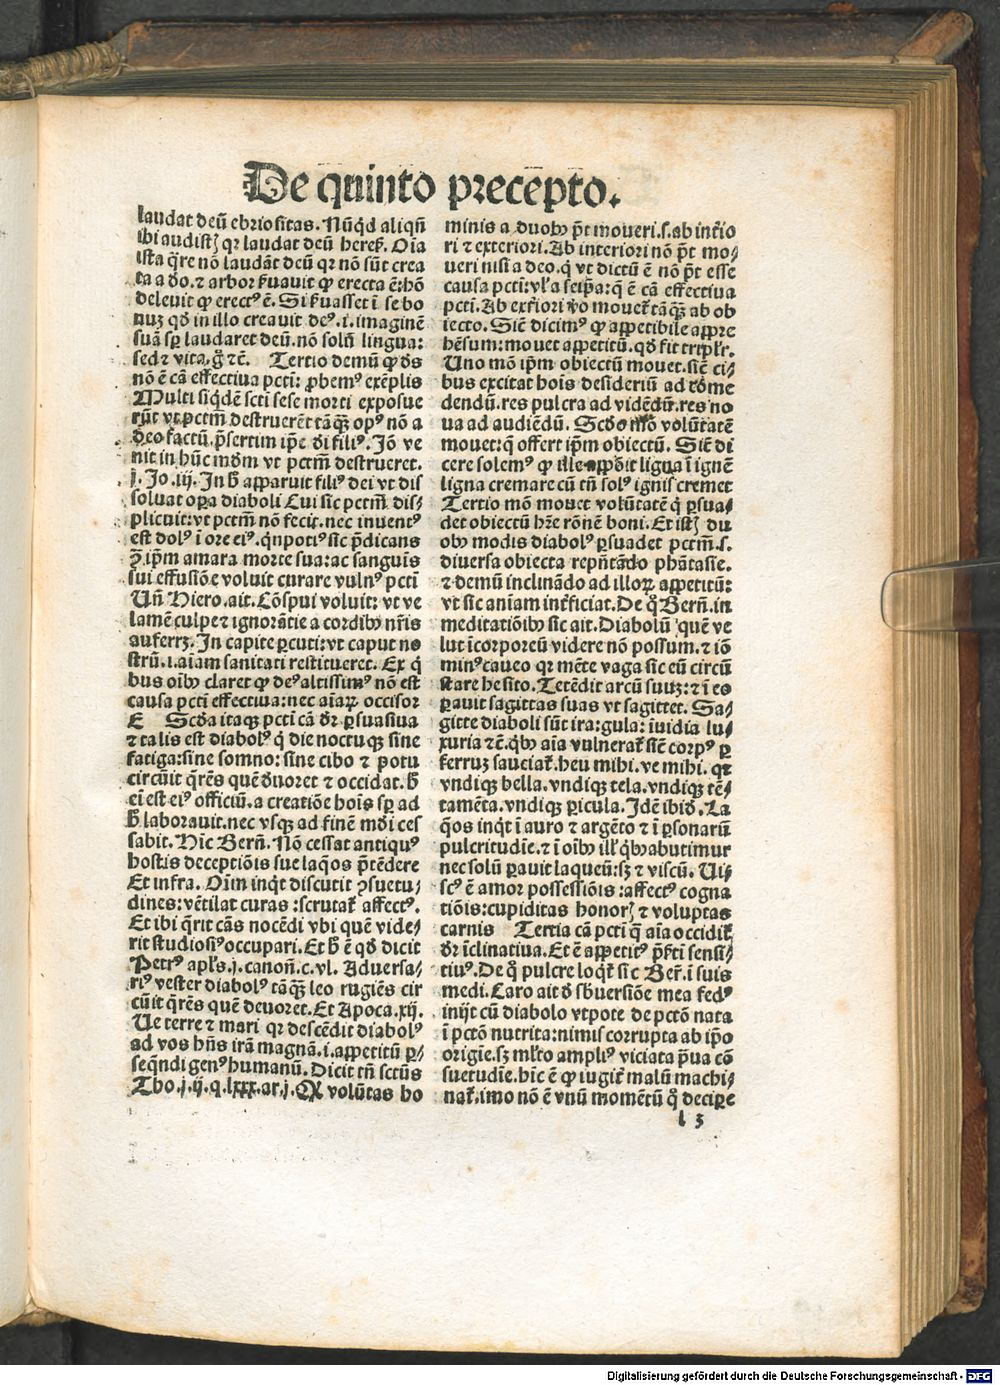 De quinto precepto.
laudat deū ebriositas. Nūqd aliqñ
ibi audistꝫ qꝛ laudat deū heres. Oīa
ista q̄re nō laudāt deū qꝛ nō sūt crea
ta a deo. ⁊ arbor ẜuauit ꝙ erecta ē: hō
deleuit ꝙ erectꝰ ē. Si ẜuasset ī se bo
nuꝫ qđ in illo creauit deꝰ .i. imaginē
suā sp̱ laudaret deū. nō solū lingua:
sed ⁊ vita. ḡ ⁊c̄. Tertio demū ꝙ dꝰs
nō ē cā effectiua pcti: ꝓbemꝰ exēplis
Multi siqdē scti sese morti exposue
rūt vt pctm̄ destruerēt tāqꝫ opꝰ nō a
deo factū. p̄sertim ip̄e dei filiꝰ. Jō ve
nit in hūc mūdm vt pctm̄ destrueret.
j. Jo. iij. In h̄ apparuit filiꝰ dei vt dis
soluat oꝑa diaboli Cui sic pctm̄ dis⸗
plicuit: vt pctm̄ nō fecit. nec inuentꝰ
est dolꝰ ī ore eiꝰ. qnpotiꝰ sic p̄dicans
ꝯ̄ ip̄m amara morte sua: ac sanguīs
sui effusiōe voluit curare vulnꝰ pcti
Uñ Hiero. ait. Cōspui voluit: vt ve
lamē culpe ⁊ ignorātie a cordibꝰ nr̄is
auferrꝫ. In capite ꝑcuti: vt caput no
strū .i. aīam sanitati restitueret. Ex q̇
bus oībꝰ claret ꝙ deꝰ altissimꝰ nō est
causa pcti effectiua: nec aīaꝝ occisor
E Scda itaqꝫ pcti cā dꝛ ꝑsuasiua
⁊ talis est diabolꝰ q̇ die noctuqꝫ sine
fatiga: sine somno: sine cibo ⁊ potu
circuit q̄rēs quē deuoret ⁊ occidat. h̄
eī est eiꝰ officiū. a creatiōe hoīs sp̱ ad
h̄ laborauit. nec vsqꝫ ad finē mūdi ces
sabit. Hīc Berñ. Nō cessat antiquꝰ
hostis deceptiōis sue laq̇os p̄tēdere
Et infra. Oīm inq̇t discutit ꝯsuetu⸗
dines: vētilat curas: scrutat᷑ affectꝰ.
Et ibi q̄rit cās nocēdi vbi quē vide⸗
rit studiosiꝰ occupari. Et h̄ ē qđ dicit
Petrꝰ apl̄s. j. canoñ. c. vl. Aduersa⸗
riꝰ vester diabolꝰ tāqꝫ leo rugiēs cir
cūit q̄rēs quē deuoret. Et Apoca. xij.
Ue terre ⁊ mari qꝛ descēdit diabolꝰ
ad vos hn̄s irā magnā .i. appetitū ꝑ⸗
seqn̄di genꝰ humanū. Dicit tn̄ sctūs
Tho. j. ij. q. lxxx. ar. j. Ꝙ volūtas ho
minis a duobꝰ pt̄ moueri .s. ab int̄io
ri ⁊ exteriori. Ab interiori nō pt̄ mo⸗
ueri nisi a deo. q̇ vt dictū ē nō pt̄ esse
causa pcti: vl̓ a seip̄a: q̄ ē cā effectiua
pcti. Ab ext̓iori v̓o mouet᷑ tāqꝫ ab ob
iecto. Sic̄ dicimꝰ ꝙ appetibile appre
hēsum: mouet appetitū. qđ fit tripl̓r.
Uno mō ip̄m obiectū mouet. sic̄ ci⸗
bus excitat hoīs desideriū ad come
dendū. res pulcra ad vidēdū. res no
ua ad audiēdū. Scdo mō volūtatē
mouet: q̇ offert ip̄m obiectū. Sic̄ di
cere solemꝰ ꝙ ille ligna ī ignē
ligna cremare cū tn̄ solꝰ ignis cremet
Tertio mō mouet volūtatē q̇ ꝑsua⸗
det obiectū hr̄e rōnē boni. Et istꝫ du
obꝰ modis diabolꝰ ꝑsuadet pctm̄ .s.
diuersa obiecta repn̄tādo phātasie.
⁊ demū inclināndo ad illoꝝ appetitū:
vt sic aniam int̓ficiat. De q̊ Berñ. in
meditatiōibꝰ sic ait. Diabolū quē ve
lut īcorporeū videre nō possum. ⁊ iō
minꝰ caueo qꝛ mēte vaga sic eū circū
stare hesito. Tetēdit arcū suuꝫ: ⁊ ī eo
ꝑauit sagittas suas vt sagittet. Sa⸗
gitte diaboli sūt ira: gula: īuidia lu⸗
xuria ⁊c̄. qbꝰ aīa vulnerat᷑ sic̄ corpꝰ ꝑ
ferruꝫ sauciat᷑. heu mihi. ve mihi. qꝛ
vndiqꝫ bella. vndiqꝫ tela. vndiqꝫ tē⸗
tamēta. vndiqꝫ ꝑicula. Jdē ibid. La
q̇os inq̇t ī auro ⁊ argēto ⁊ ī ꝑsonarū
pulcritudīe. ⁊ ī oībꝰ ill̓ qbꝰ abutimur
nec solū ꝑauit laqueū: sꝫ ⁊ viscū. Ui⸗
scꝰ ē amor possessiōis: affectꝰ cogna
tiōis: cupiditas honorꝫ ⁊ voluptas
carnis Tertia cā pcti q̄ aīa occidit᷑
dꝛ īclinatiua. Et ē appetitꝰ p̄sti sensi⸗
tiuꝰ. De q̊ pulcre loqt᷑ sic Ber̄. ī suis
medi. Caro ait de sb̓uersiōe mea fedꝰ
inijt cū diabolo vtpote de pctō nata
ī pctō nutrita: nimis corrupta ab ip̄o
origīe. sꝫ ml̓to ampliꝰ viciata p̄ua cō
suetudīe. hīc ē ꝙ iugit᷑ malū machi⸗
nat᷑. imo nō ē vnū momētū q̊ deciꝑe
l 3
Digitalisierung gefördert durch die Deutsche Forschungsgemeinschaft - DFG